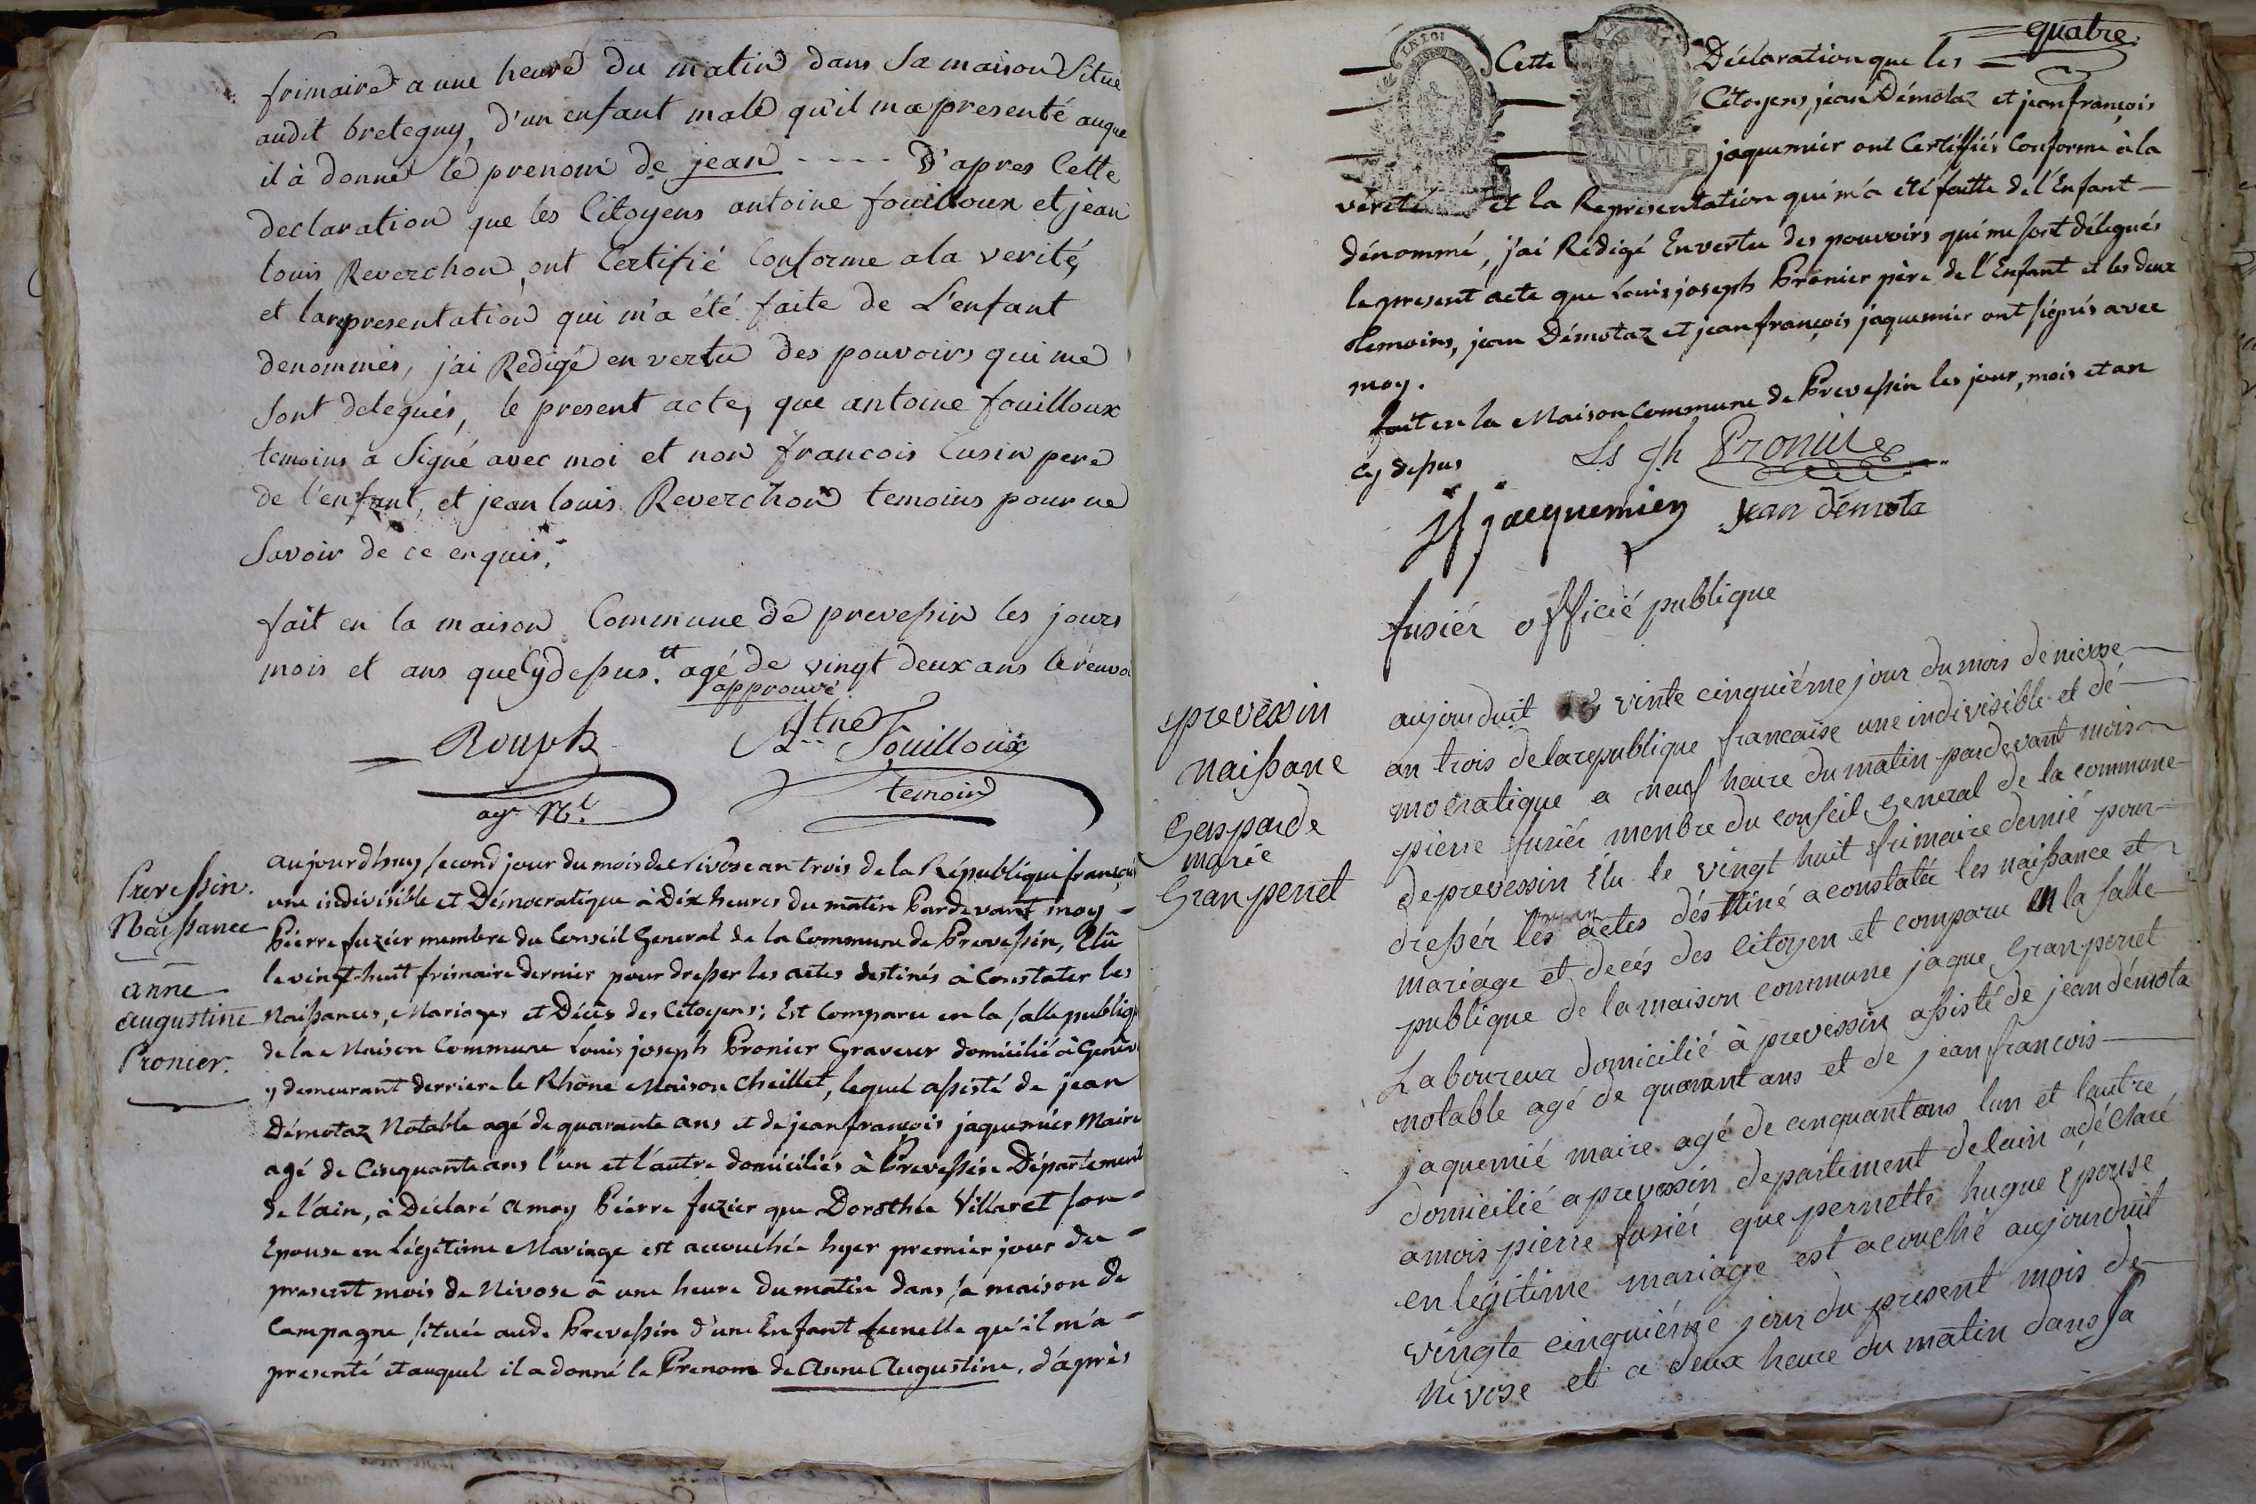 frimaire a une heure du matin dans Sa maison Situé
audit bretegny, d'un enfant male qu'il ma presenté auque
il à donné le prenom de jean - - - - D'apres Cette
declaration que les Citoyens antoine fouilloux et jean
louis Reverchon ont Certifié Conforme a la verité,
et la representation qui m'a été faite de L'enfant
denommés, j'ai Redigé en vertu des pouvoirs qui me
Sont delegués, le present acte, que antoine fouilloux
temoins a Signé avec moi et non francois Cusin pere
de l'enfant, et jean louis Reverchon temoins pour ne
Savoir de ce enquis.
fait en la maison Commune de prevessin les jours
mois et ans que Cy dessus. tt agé de vingt deux ans le renvoi
approuvé
Rouph Atne Fouilloux
ag. Nl. temoin
Prevessin.
Naissance
anne
augustine
Pronier.
aujourd'huy second jour du mois de Nivose an trois de la République françai
une indivisible et Démocratique à Dix heures du matin Pardevant moy -
Pierre fuzier membre du Conseil General de la Commune de Prevessin, Elû
le vingt-huit frimaire dernier pour dresser les actes destinés à Constater les
Naissances, Mariages et Décès des Citoyens; Est Comparu en la salle publiq
de la Maison Commune Louis joseph Pronier Graveur domicilié à Genèv
y demeurant derriere le Rhône Maison Cheillet, lequel assisté de jean
Démotaz Notable agé de quarante ans et de jean françois jaquemier Maire
agé de Cinquante ans l'un et l'autre domiciliés à Prevessin Département
de l'ain, à Déclaré a moy Pierre fuzier que Dorothée Villaret son -
Epouse en Légitime Mariage est accouchée hyer premier jour du -
present mois de Nivose à une heure du matin dans sa maison de
Campagne située aud. Prevessin d'une Enfant femelle qu'il m'a -
presenté et auquel il a donné le Prenom de Anne Augustine. d'après
quatre.
LA LOI
Cette Déclaration que les
Citoyens jean Démotaz et jean françois
jaquemier ont Certiffiés Conforme à la
vérité et la Représentation qui m'a été faitte de l'Enfant -
dénommé, j'ai Rédigé En vertu des pouvoirs qui me sont délegués
le present acte que Louis joseph Pronier père de l'Enfant et les deux
temoins, jean Démotaz et jean françois jaquemier ont signés avec
moy.
fait en la Maison Commune de Prevessin les jour, mois et an
cy dessus Ls Jh Pronier
Jf jacquemier jean démota
fusiér officié publique
prevessin
naissane
Gasparde
marie
Granperret
aujourduit vinte cinquiéme jour du mois de nivose
an trois de la republique francaise une indivisible et dé
mocratique a neuf heure du matin pardevant mois
pierre fusiér menbre du conseil general de la commune
de prevessin Élu le vingt huit frimaire dernié pour
dressér les actes déstiné a constatér les naissance et
mariage et decés des citoyen et comparu en la salle
publique de la maison commune jaque Granperret
Laboureur domicilié à prevessin assisté de jean démota
notable agé de quarant ans et de jean francois
jaquemié maire agé de cinquant ans lun et lautre
domicilié a prevessin departement de lain a déclaré
a mois pierre fusiér que pernette hugue épouse
en légitime mariage est acouché aujourduit
vingte cinquiéme jour du present mois de
nivose et a deux heure du matin dans sa